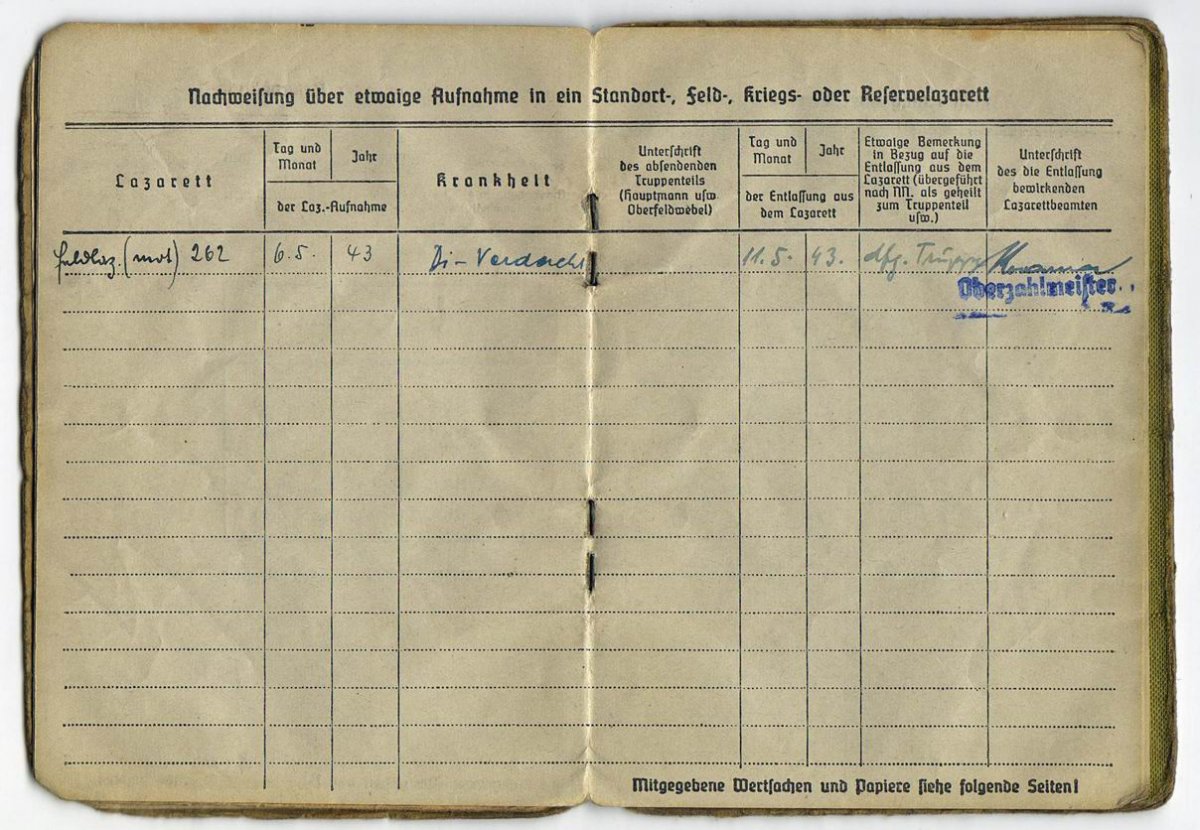 Nachweisung über etwaige Aufnahme in ein Standort-, Feld-, Kriegs- oder Reservelazarett
Lazarett
Tag und
Monat
Jahr
der Laz.-Aufnahme
Krankheit
Unterschrift
des absendenden
Truppenteils
(Hauptmann usw.
Oberfeldwebel)
Tag und
Monat
Jahr
der Entlassung aus
dem Lazarett
Etwaige Bemerkung
in Bezug auf die
Entlassung aus dem
Lazarett (übergeführt
nach NN. als geheilt
zum Truppenteil
usw.)
Unterschrift
des die Entlassung
bewirkenden
Lazarettbeamten
Feldlaz. (mot) 262 6.5. 43 Di-Verdacht 11.5. 43. dfg. Truppe
Oberzahlmeister
Mitgegebene Wertsachen und Papiere siehe folgende Seiten!